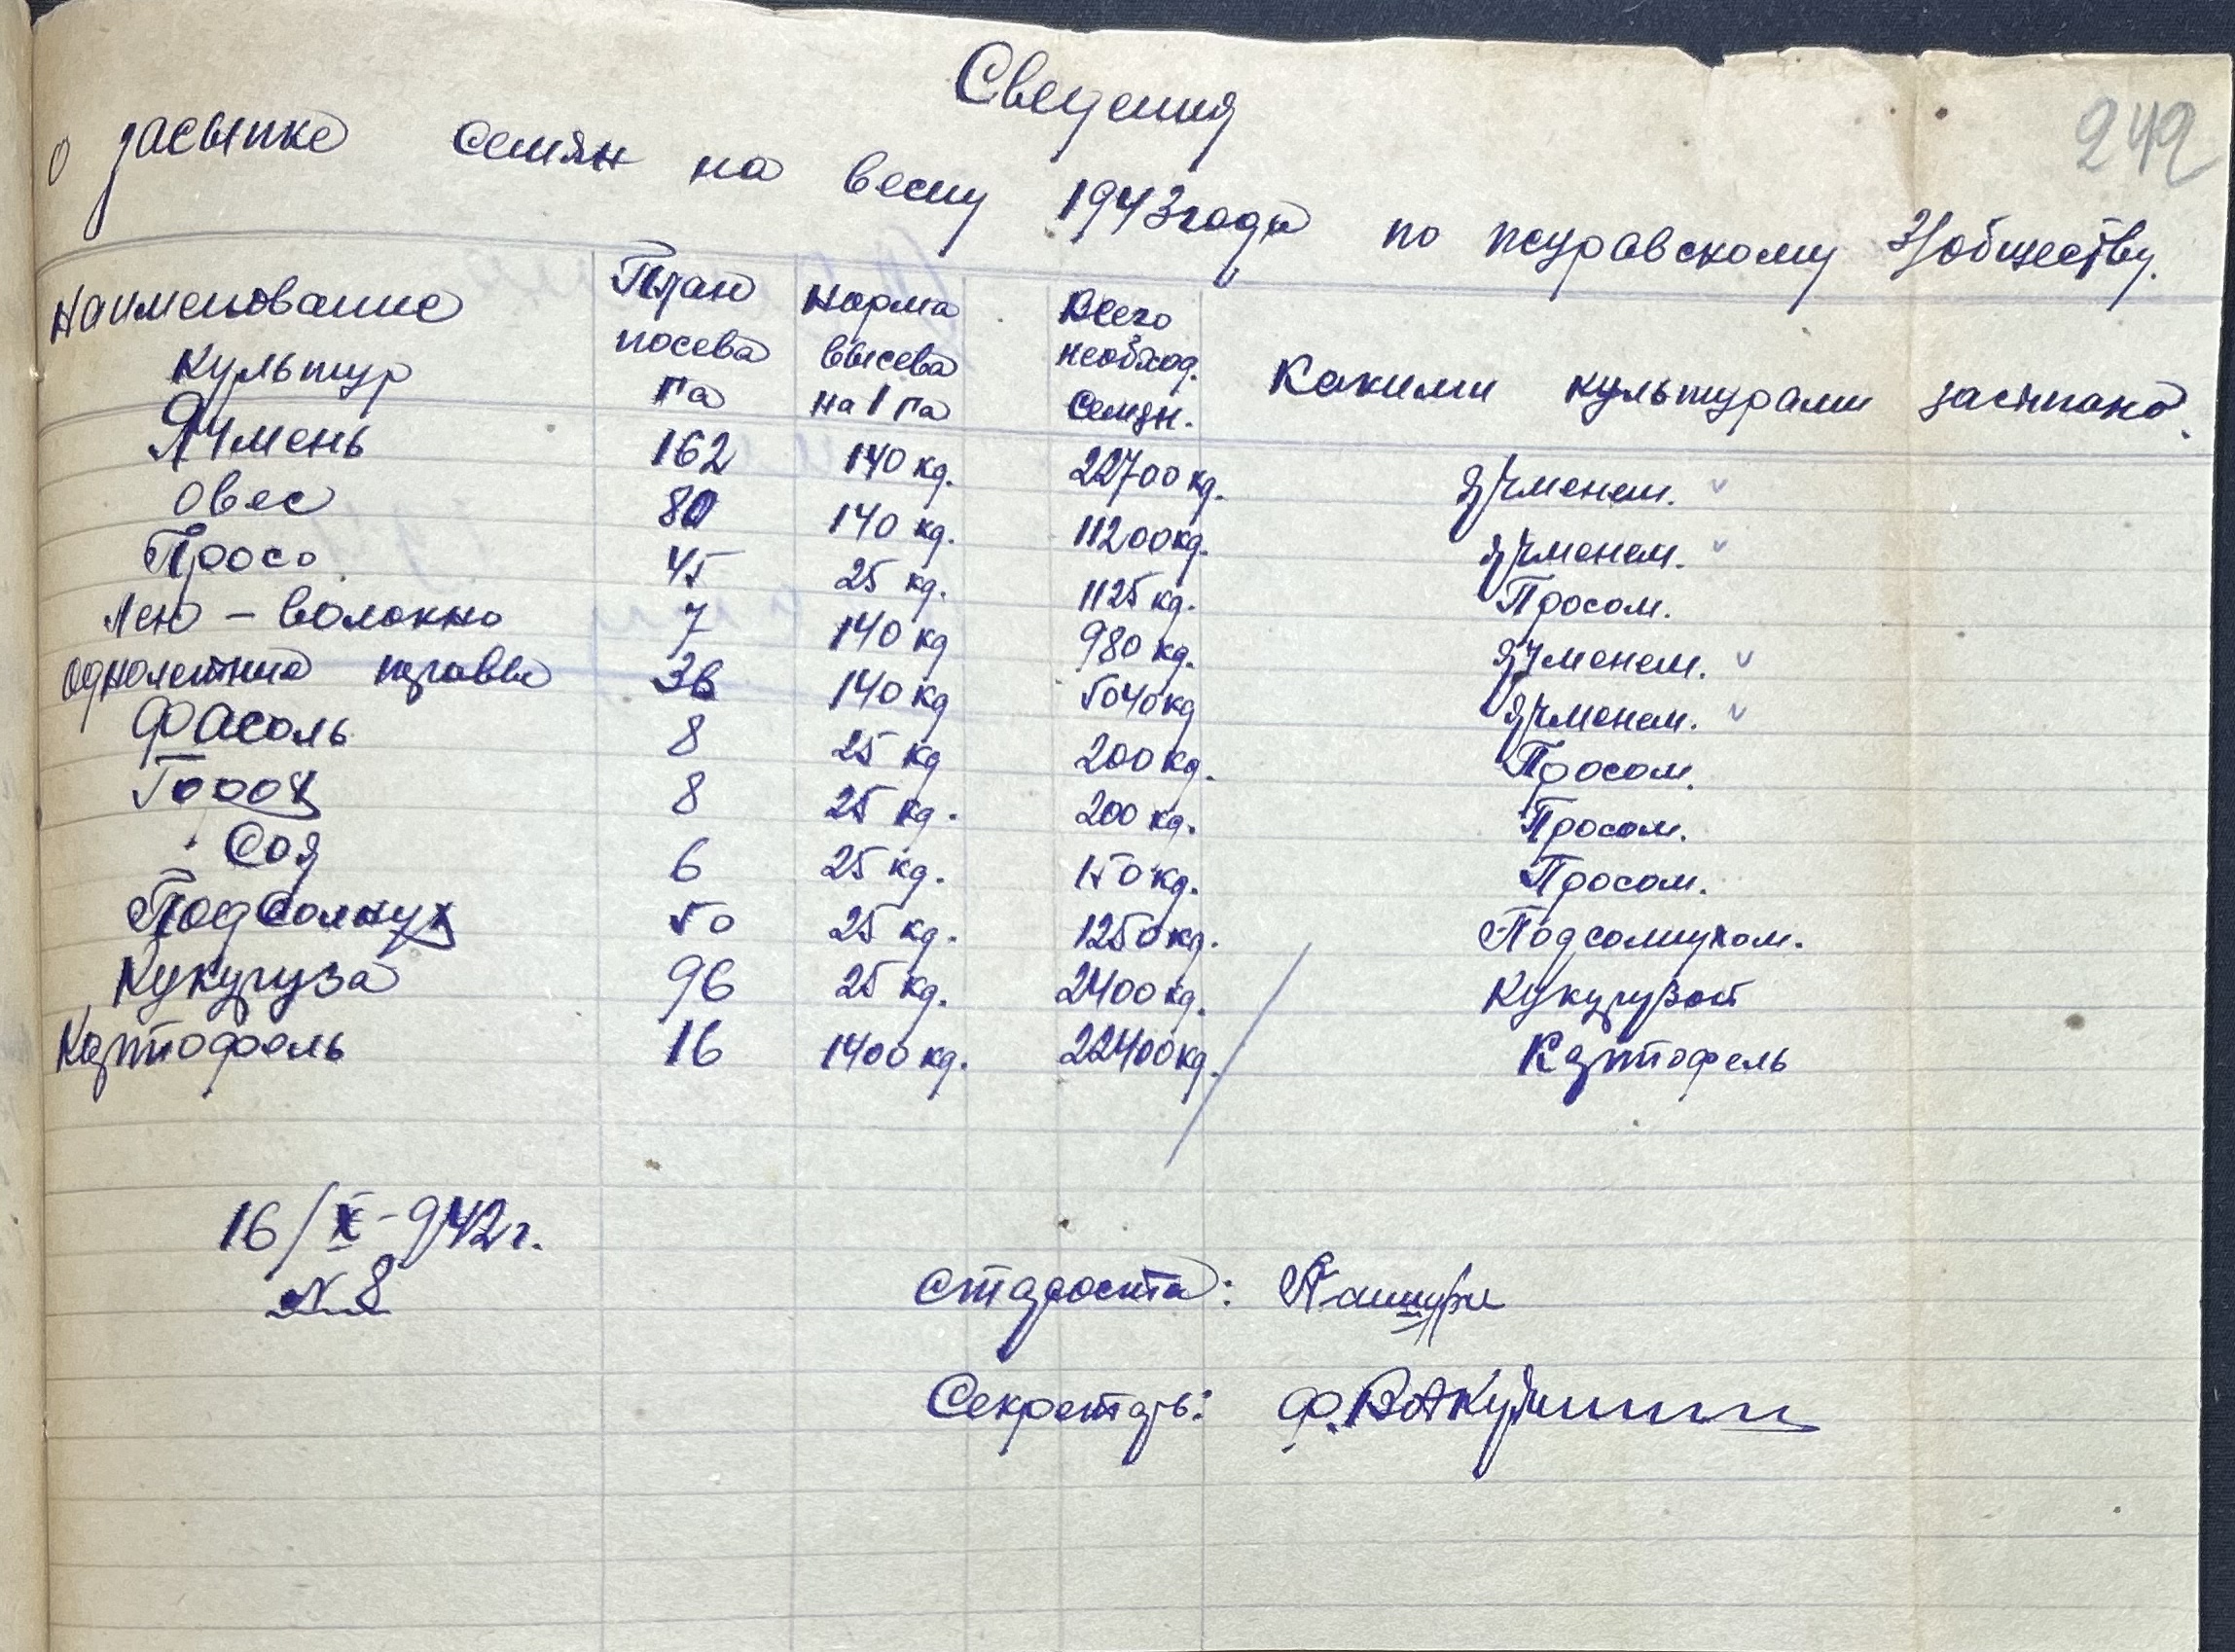 242
Сведения
о засыпке семян на весну 1943 года по журавскому З/обществу.
Наименование культур | План посева га | Норма высева на 1 га | Всего необход. семян. | Какими культурами засыпано.
Ячмень 162 140 кг. 22700 кг. Ячменем.
Овес 80 140 кг. 11200 кг. Ячменем.
Просо 45 25 кг. 1125 кг. Просом.
Лен – волокно 7 140 кг 980 кг. Ячменем.
Однолетние травы 36 140 кг 5040 кг Ячменем.
Фасоль 8 25 кг 200 кг. Просом.
Горох 8 25 кг. 200 кг. Просом.
Соя 6 25 кг. 150 кг. Просом.
Подсолнух 50 25 кг. 1250 кг. Подсолнухом.
Кукуруза 96 25 кг. 2400 кг. Кукурузой
Картофель 16 1400 кг. 22400 кг. Картофель
16/X-942г.
№ 8
Староста:
Секретарь: